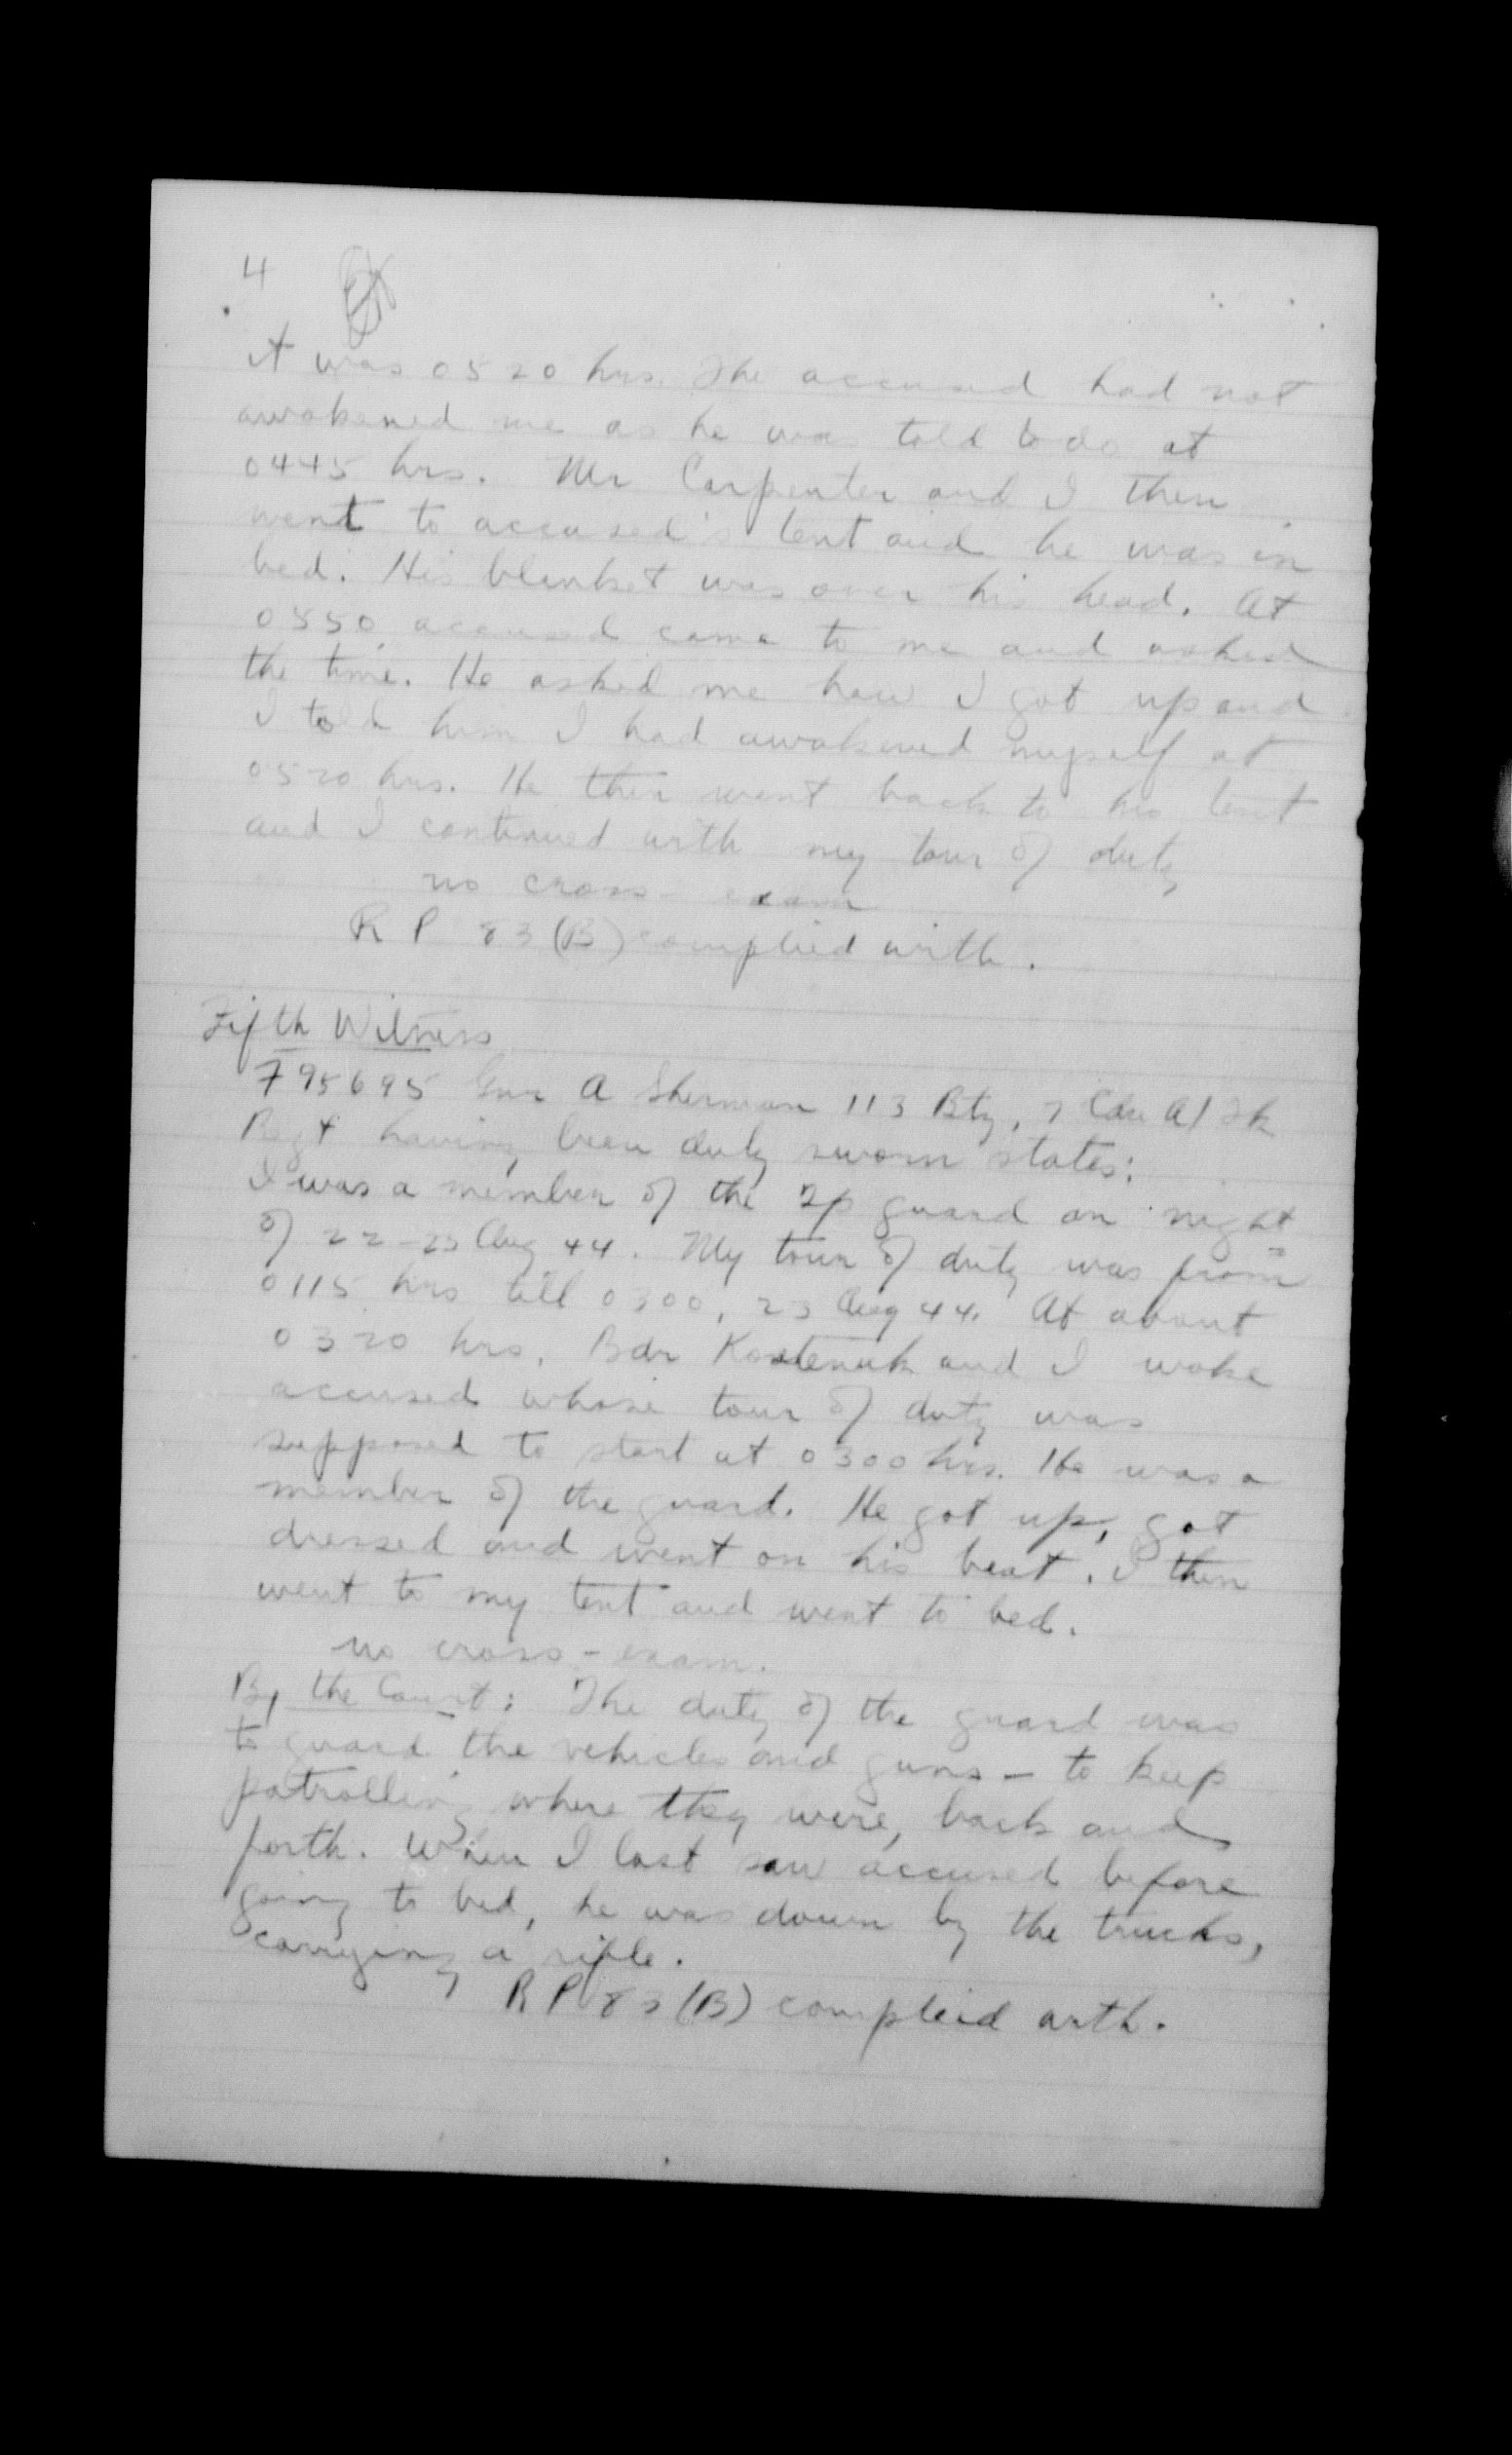 4
it was 0520 hrs. The accused had not
awakened me as he was told to do at
0445 hrs. Mr Carpenter and I then
went to accused's tent and he was in
bed. His blanket was over his head. At
0550 accused came to me and asked
the time. He asked me how I got up and
I told him I had awakened myself at
0520 hrs. He then went back to his tent
and I continued with my tour of duty
no cross-exam
R P 83 (B) complied with.
Fifth Witness
795695 Gnr A Sherman 113 Bty, 7 Cdn A/Tk
Regt having been duly sworn states:
I was a member of the Tp guard on night
of 22-23 Aug 44. My tour of duty was from
0115 hrs till 0300, 23 Aug 44. At about
0320 hrs. Bdr Kostenuk and I woke
accused whose tour of duty was
supposed to start at 0300 hrs. He was a
member of the guard. He got up, got
dressed and went on his beat. I then
went to my tent and went to bed.
no cross-exam.
By the Court: The duty of the guard was
to guard the vehicles and guns - to keep
patrolling where they were, back and
forth. When I last saw accused before
going to bed, he was down by the trucks,
carrying a rifle.
R P 83 (B) complied with.